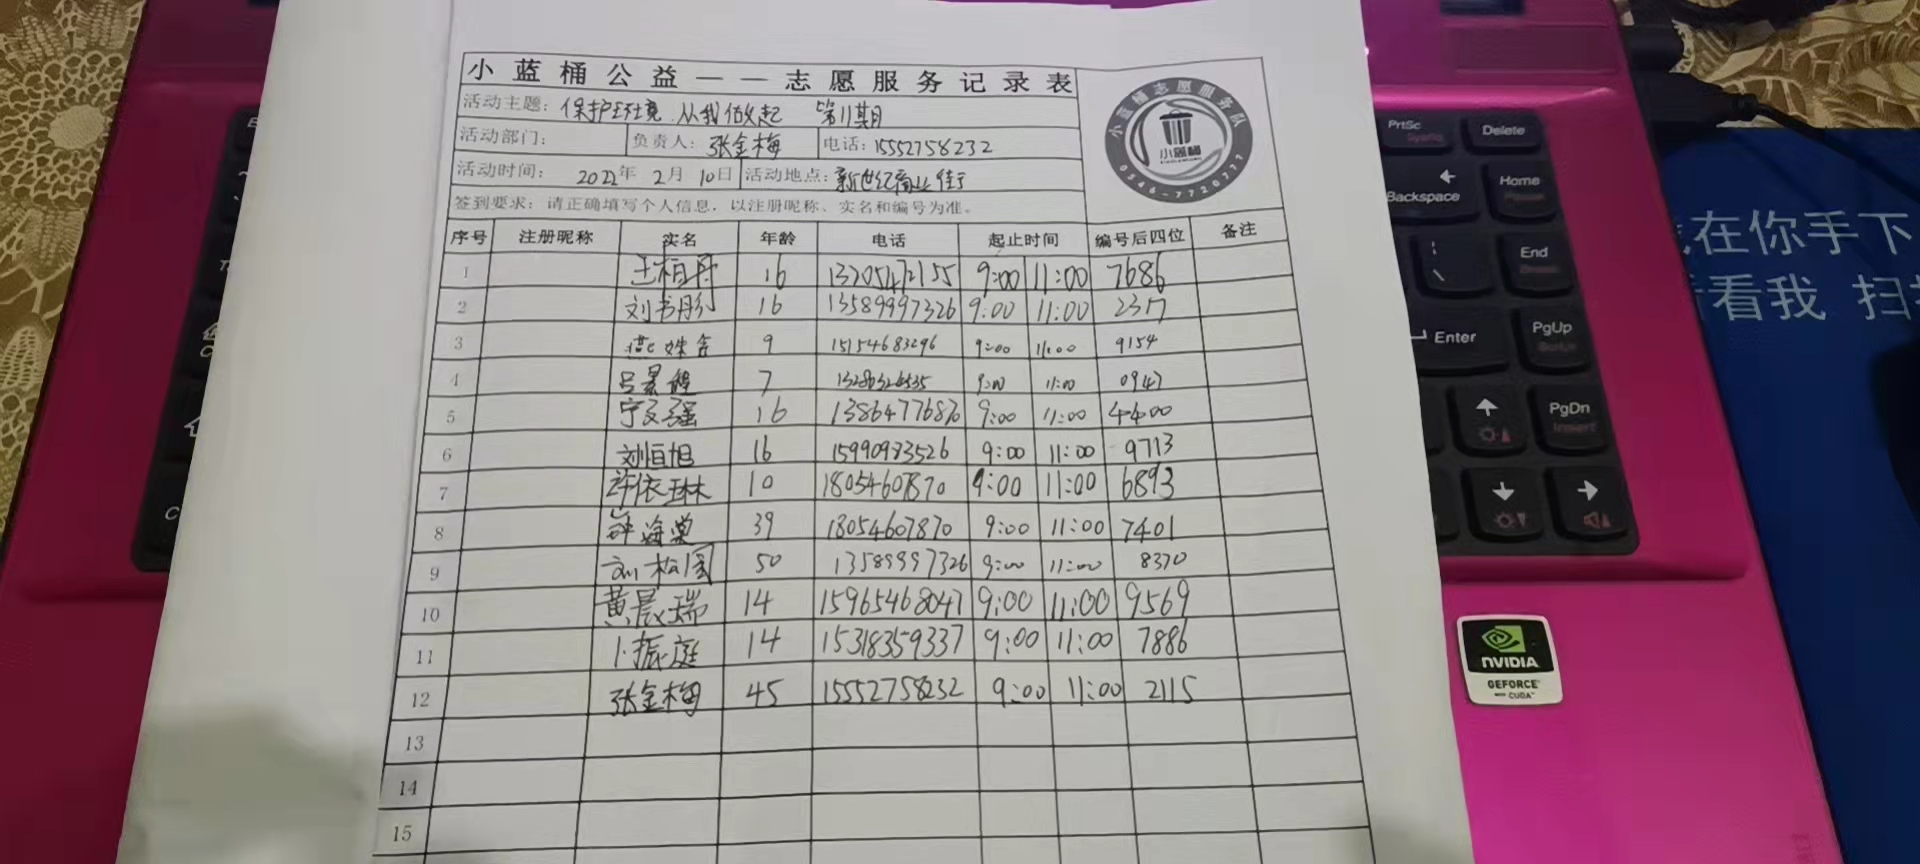 小蓝桶公益——志愿服务记录表
活动主题: 保护环境 从我做起 第11期
活动部门: 负责人: 张金梅 电话: 15552758232
活动时间: 2022年 2月 10日 活动地点: 新世纪商业街
签到要求: 请正确填写个人信息, 以注册昵称、实名和编号为准。
小蓝桶志愿服务队
小蓝桶
0546-7720777
序号 注册昵称 实名 年龄 电话 起止时间 编号后四位 备注
1 16 9:00 11:00 7686
2 刘书彤 16 13589997326 9:00 11:00 2317
3 9 15154683296 9:00 11:00 9154
4 7 9:00 11:00 0947
5 16 9:00 11:00 4400
6 刘恒旭 16 15990983526 9:00 11:00 9713
7 许依琳 10 18054607870 9:00 11:00 6893
8 薛海棠 39 18054607870 9:00 11:00 7401
9 刘松国 50 13589997326 9:00 11:00 8370
10 黄晨瑞 14 15965468047 9:00 11:00 9569
11 卜振庭 14 15318359337 9:00 11:00 7886
12 张金梅 45 15552758232 9:00 11:00 2115
13
14
15
PrtSc
Delete
Backspace
Home
End
Enter
PgUp
PgDn
Insert
在你手下
看我 扫
NVIDIA
GEFORCE
CUDA